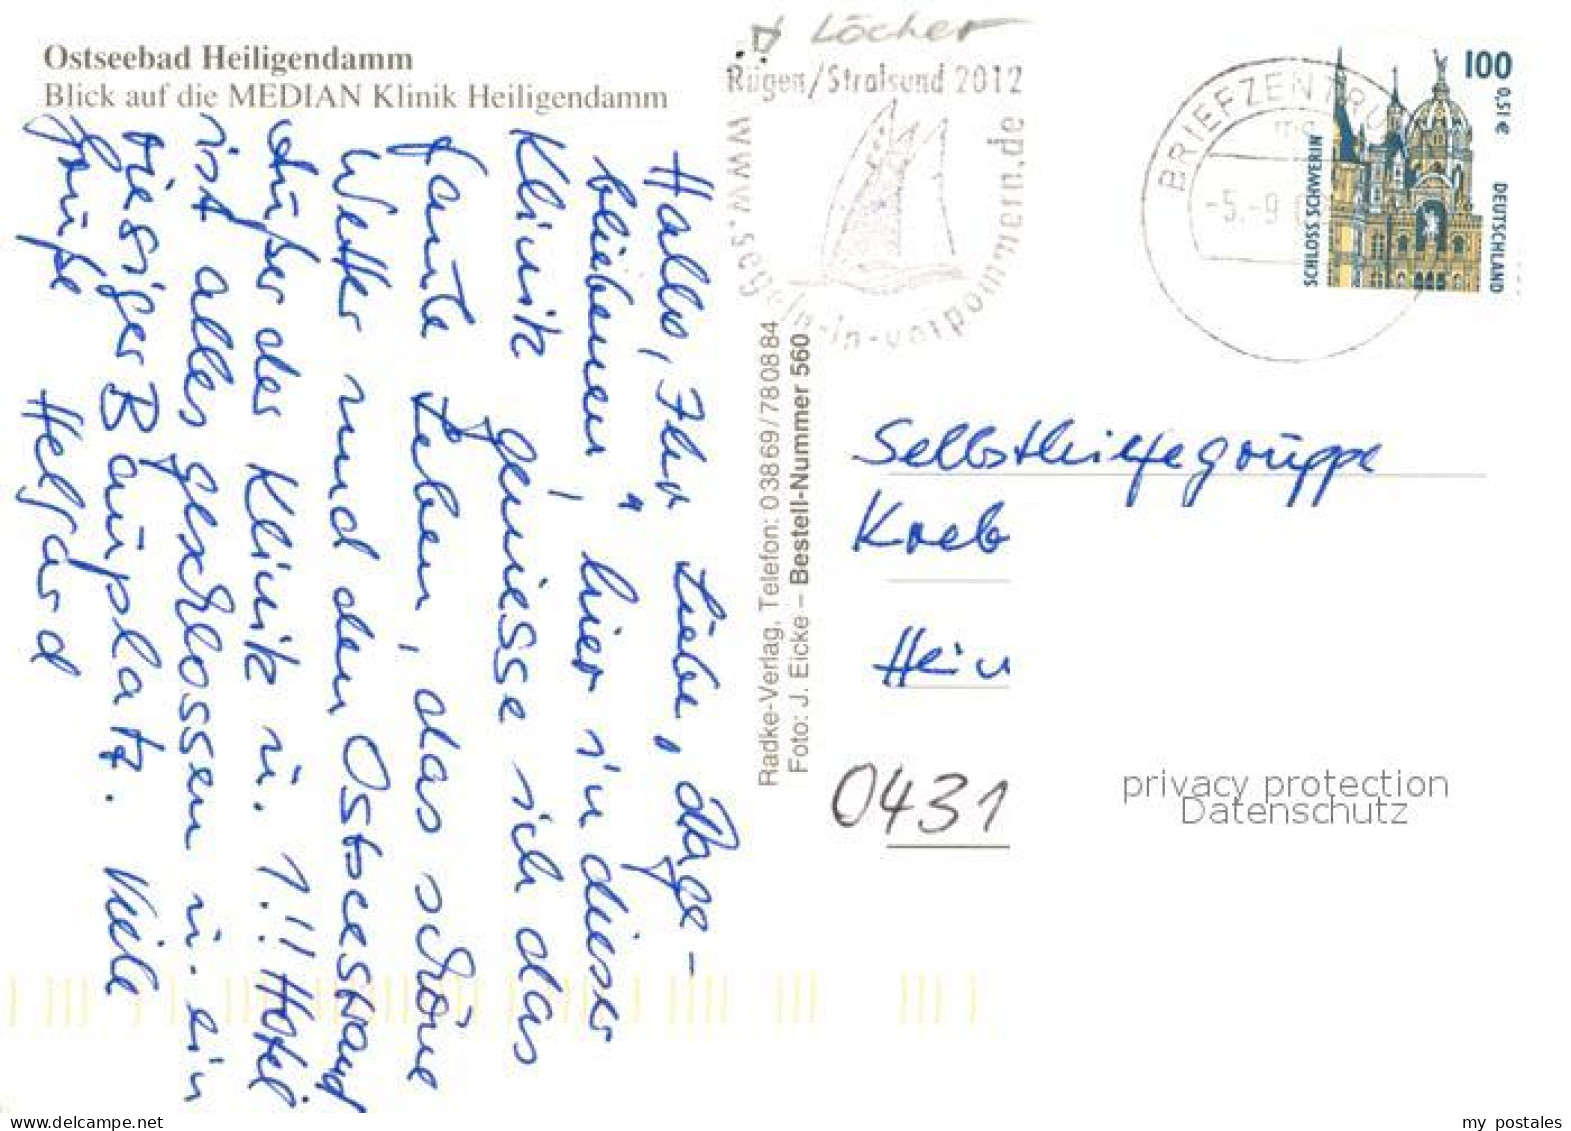 Ostseebad Heiligendamm
Blick auf die MEDIAN Klinik Heiligendamm
Hallo, Ihr Lieben, dage-
bliebenen, hier in dieser
Klinik geniesse ich das
faule Leben, das schöne
Wetter und den Ostseestrand
Außer der Klinik u. 1!!! Hotel
ist alles geschlossen u. ein
riesiger Bauplatz. Viele
Grüße Helgard
Radke-Verlag, Telefon: 03869/780884
Foto: J. Eicke – Bestell-Nummer 560
4 Löcher
Rügen/Stralsund 2012
www.segeln-in-vorpommern.de
BRIEFZENTRU
-5.-9
100
0,51 €
SCHLOSS SCHWERIN
DEUTSCHLAND
Selbsthilfegruppe
Kreb
Hein
0431
privacy protection
Datenschutz
my postales